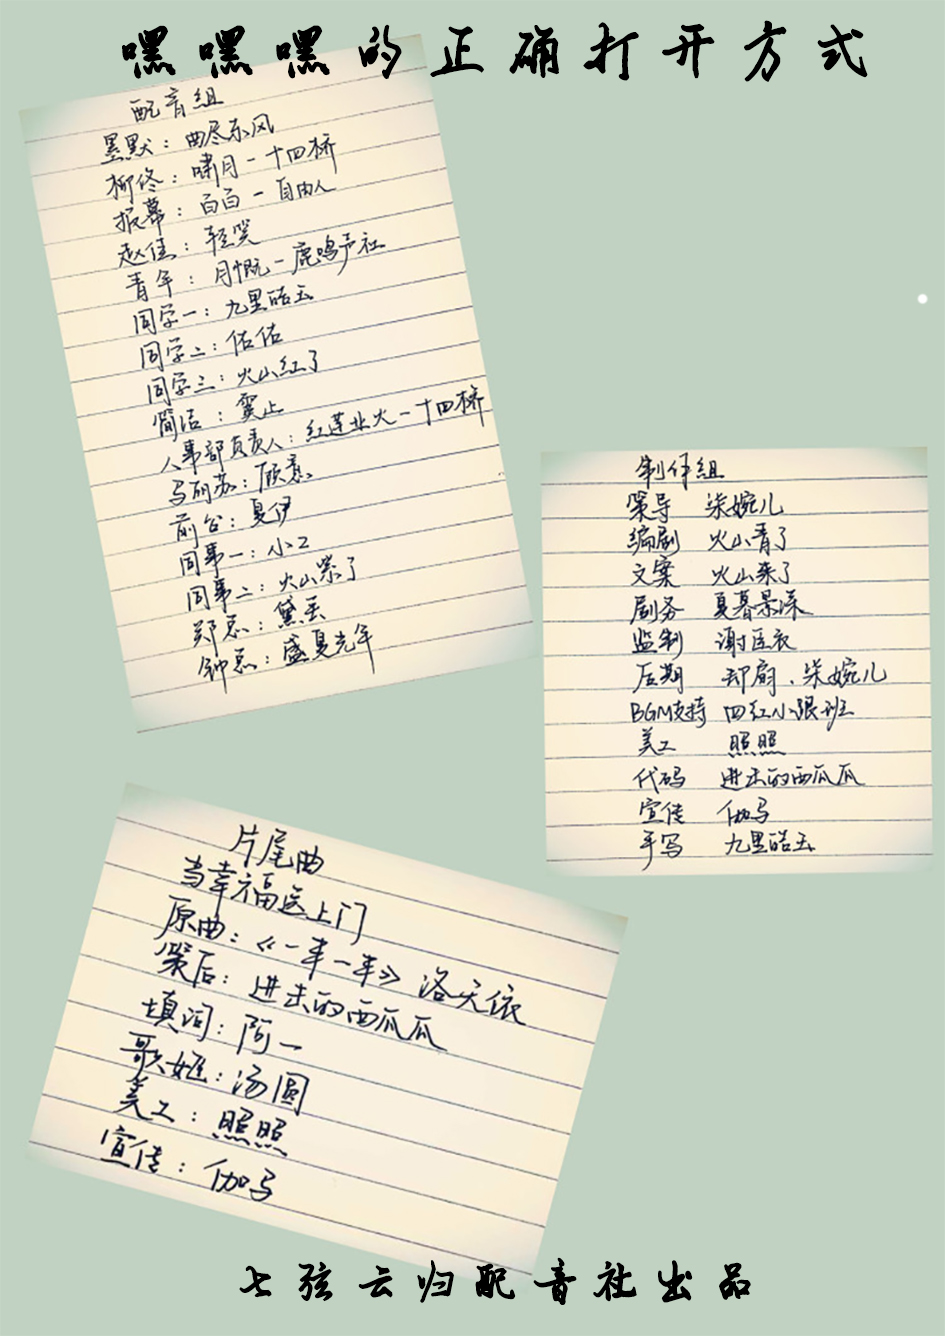 嘿嘿嘿的正确打开方式
配音组
墨默：曲尽东风
柳佟：啸月－十四桥
报幕：白白－自由人
赵佳：轻笑
青年：月慨－鹿鸣声社
同学一：九里皓玉
同学二：佑佑
同学三：火山红了
简洁：霙止
人事部负责人：红莲业火－十四桥
马丽苏：顾熹
前台：夏伊
同事一：小乙
同事二：火山紫了
郑总：黛玉
钟总：盛夏光年
制作组
策导 柒婉儿
编剧 火山青了
文案 火山来了
剧务 夏暮景深
监制 谢臣衣
后期 却扇、柒婉儿
BGM支持 四红小限班
美工 照照
代码 进击的西瓜瓜
宣传 伽马
手写 九里皓玉
片尾曲
当幸福送上门
原曲：《一半一半》洛天依
策后：进击的西瓜瓜
填词：阿一
歌姬：汤圆
美工：照照
宣传：伽马
七弦云归配音社出品